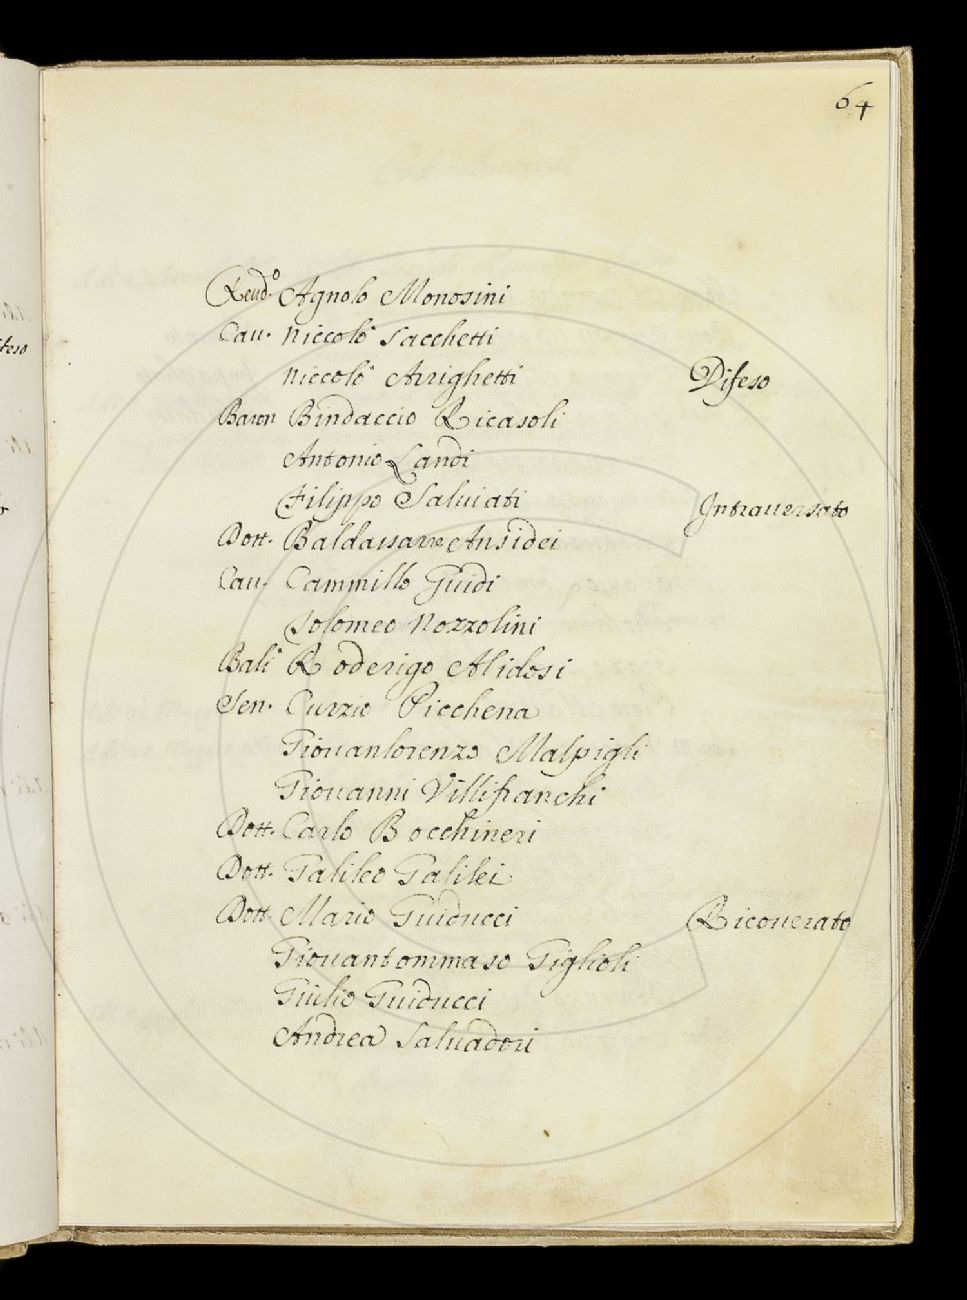 64
Reud.º Agnolo Monosini
Cau. Niccolò Sacchetti
Niccolò Arrighetti Difeso
Baron Bindaccio Ricasoli
Antonio Landi
Filippo Saluiati Intrauersato
Dott. Baldassarre Ansidei
Cau. Cammillo Guidi
Jolomeo Nozzolini
Balì Roderigo Alidosi
Sen. Curzio Picchena
Giouanlorenzo Malpigli
Giouanni Villifranchi
Dott. Carlo Bocchineri
Dott. Galileo Galilei
Dott. Mario Guiducci Ricouerato
Giouantommaso Giglioli
Giulio Guiducci
Andrea Saluadori